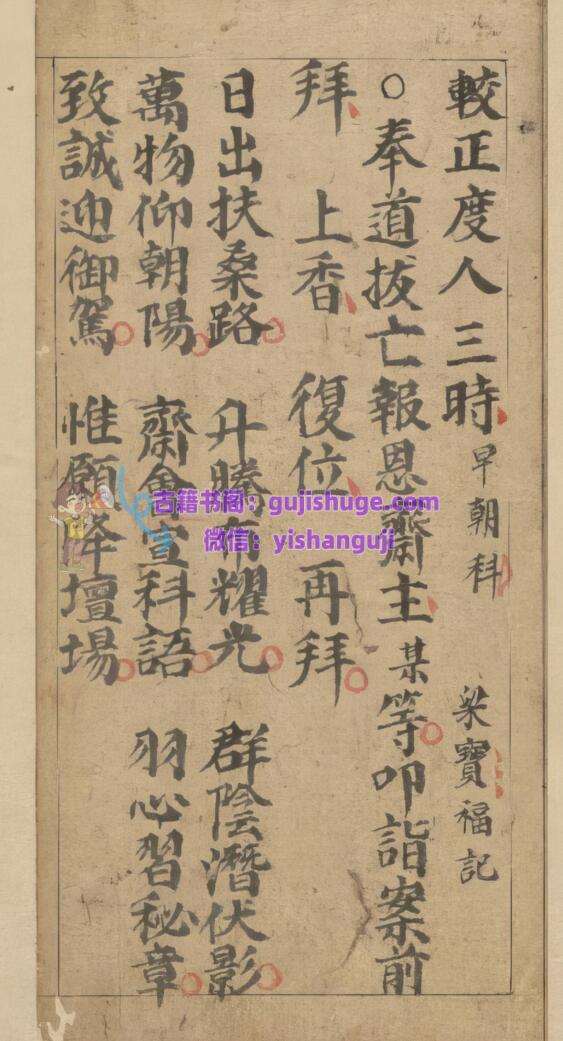 較正度人三時 早朝科 梁寶福記
○奉道拔亡報恩齋主某等叩詣案前
拜 上香 復位 再拜
日出扶桑路 升騰布耀光 群陰潛伏影
萬物仰朝陽 齋會宣科語 羽心習秘章
致誠迎御駕 惟願降壇場
古籍书阁：gujishuge.com
微信：yishanguji